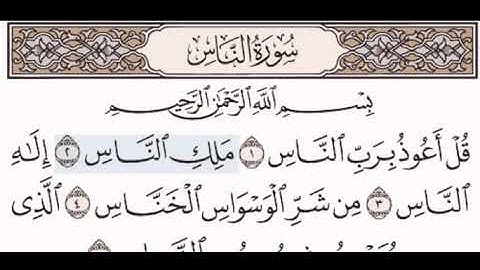 سُورَةُ النَّاسِ
بِسْمِ اللَّهِ الرَّحْمَٰنِ الرَّحِيمِ
قُلْ أَعُوذُ بِرَبِّ النَّاسِ ١ مَلِكِ النَّاسِ ٢ إِلَٰهِ
النَّاسِ ٣ مِن شَرِّ الْوَسْوَاسِ الْخَنَّاسِ ٤ الَّذِي